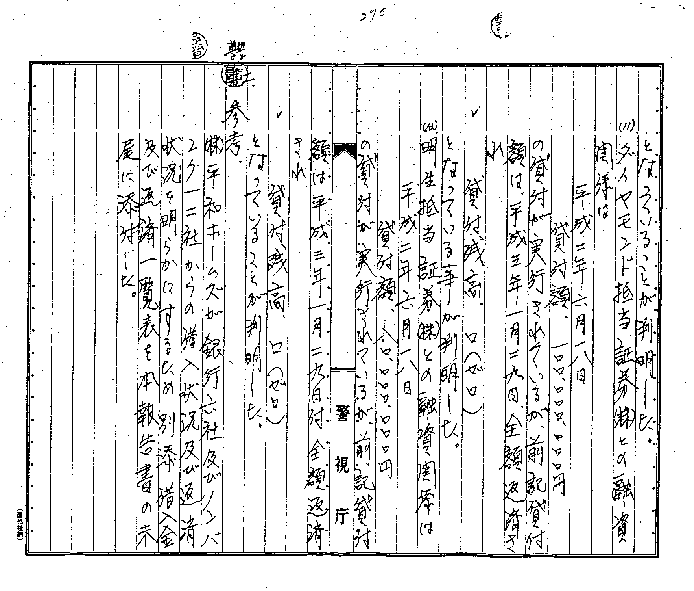 275
となっていることが判明した。
(11) ダイヤモンド抵当証券(株)との融資
関係は
平成二年六月一八日
貸付額、一〇〇〇、〇〇〇円
の貸付が実行されているが前記貸付
額は、平成三年一月二九日全額返済さ
れ
貸付残高 〇(ゼロ)
となっている事が判明した。
(12) 明生抵当証券(株)との融資関係は
平成二年六月一八日
貸付額、
の貸付が実行されているが、前記貸付
警視庁
額は平成三年一月二九日付、全額返済
され
貸付残高 〇(ゼロ)
となっていることが判明した。
参考
(株)平和ホームズが銀行六社及びノンバ
ンク一二社からの借入状況及び返済
状況を明らかにするため別添借入金
及び返済一覧表を本報告書の末
尾に添付した。